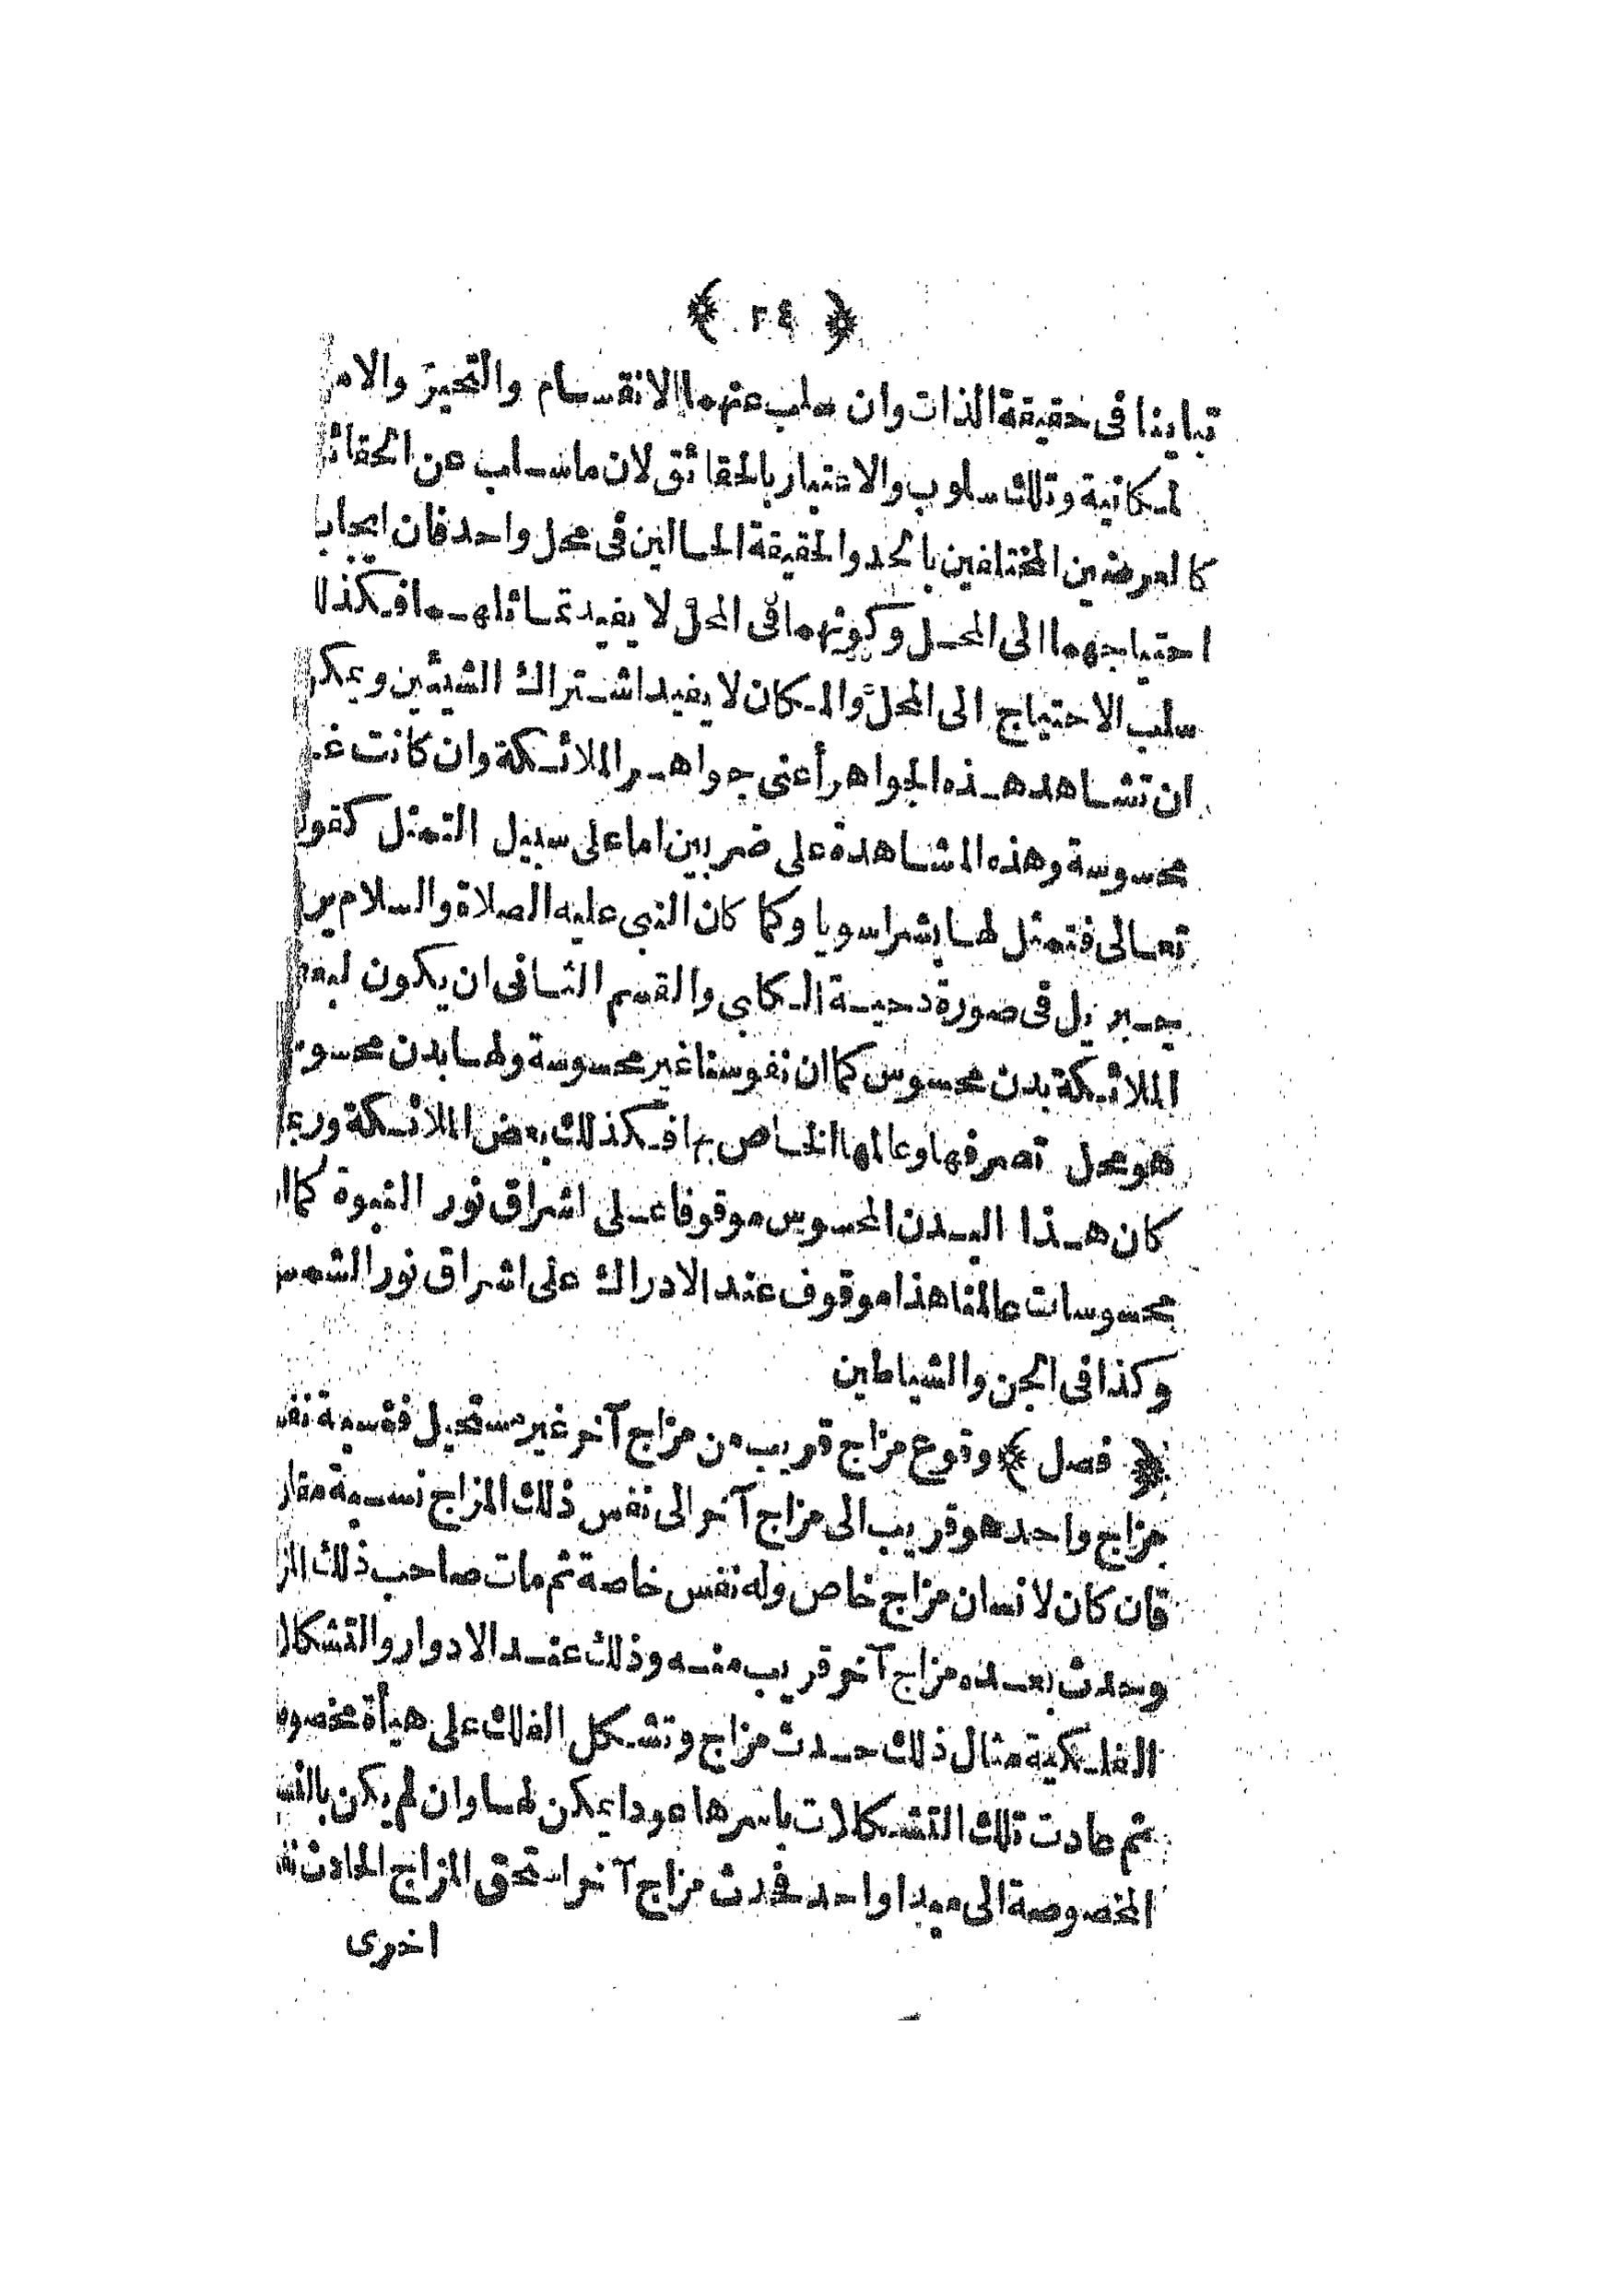 ﴿ ٢٤ ﴾
تباينا فى حقيقة الذات وان سلب عنهما الانقسام والتحيز والامـ
لمكانية وتلك سلوب والاعتبار بالحقائق لان ما سلب عن الحقائـ
كالعرضين المختلفين بالحد والحقيقة الحالين فى محل واحد فان ايجاب
احتياجهما الى المحل وكونهما فى المحل لا يفيد تماثلهما فكذلك
سلب الاحتياج الى المحل والمكان لا يفيد اشتراك الشيئين ويمكن
ان تشاهد هذه الجواهر أعنى جواهر الملائكة وان كانت غـ
محسوسة وهذه المشاهدة على ضربين اما على سبيل التمثل كقولـ
تعالى فتمثل لها بشرا سويا وكما كان النبى عليه الصلاة والسلام يرى
جبريل فى صورة دحية الكلبى والقسم الثانى ان يكون لبعـ
الملائكة بدن محسوس كما ان نفوسنا غير محسوسة ولها بدن محسوس
هو محل تصرفها وعالمها الخاص بها فكذلك بعض الملائكة وربما
كان هذا البدن المحسوس موقوفا على اشراق نور النبوة كما ان
محسوسات عالمنا هذا موقوف عند الادراك على اشراق نور الشمس
وكذا فى الجن والشياطين
﴿ فصل ﴾ وقوع مزاج قريب من مزاج آخر غير مستحيل فنسبة نفس
مزاج واحد هو قريب الى مزاج آخر الى نفس ذلك المزاج نسبة مقار
فان كان لانسان مزاج خاص وله نفس خاصة ثم مات صاحب ذلك المز
وحدث بعده مزاج آخر قريب منه وذلك عند الادوار والتشكلا
الفلكية مثال ذلك حدث مزاج وتشكل الفلك على هيأة مخصوصـ
ثم عادت تلك التشكلات باسرها عودا يمكن لها وان لم يكن بالنسـ
المخصوصة الى مبدا واحد فحدث مزاج آخر استحق المزاج الحادث نفـ
اخرى